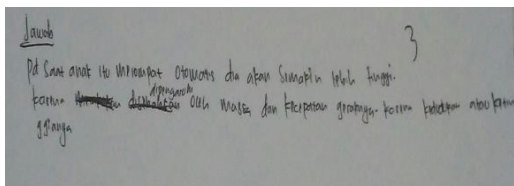 Jawab
3
Pd saat anak itu melompat otomatis dia akan semakin lebih tinggi.
karena dipengaruhi oleh massa dan kecepatan geraknya. karena kedudukan atau ketin
ggianya